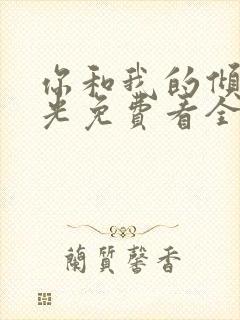 你和我的倾
光免费看全
蘭質馨香